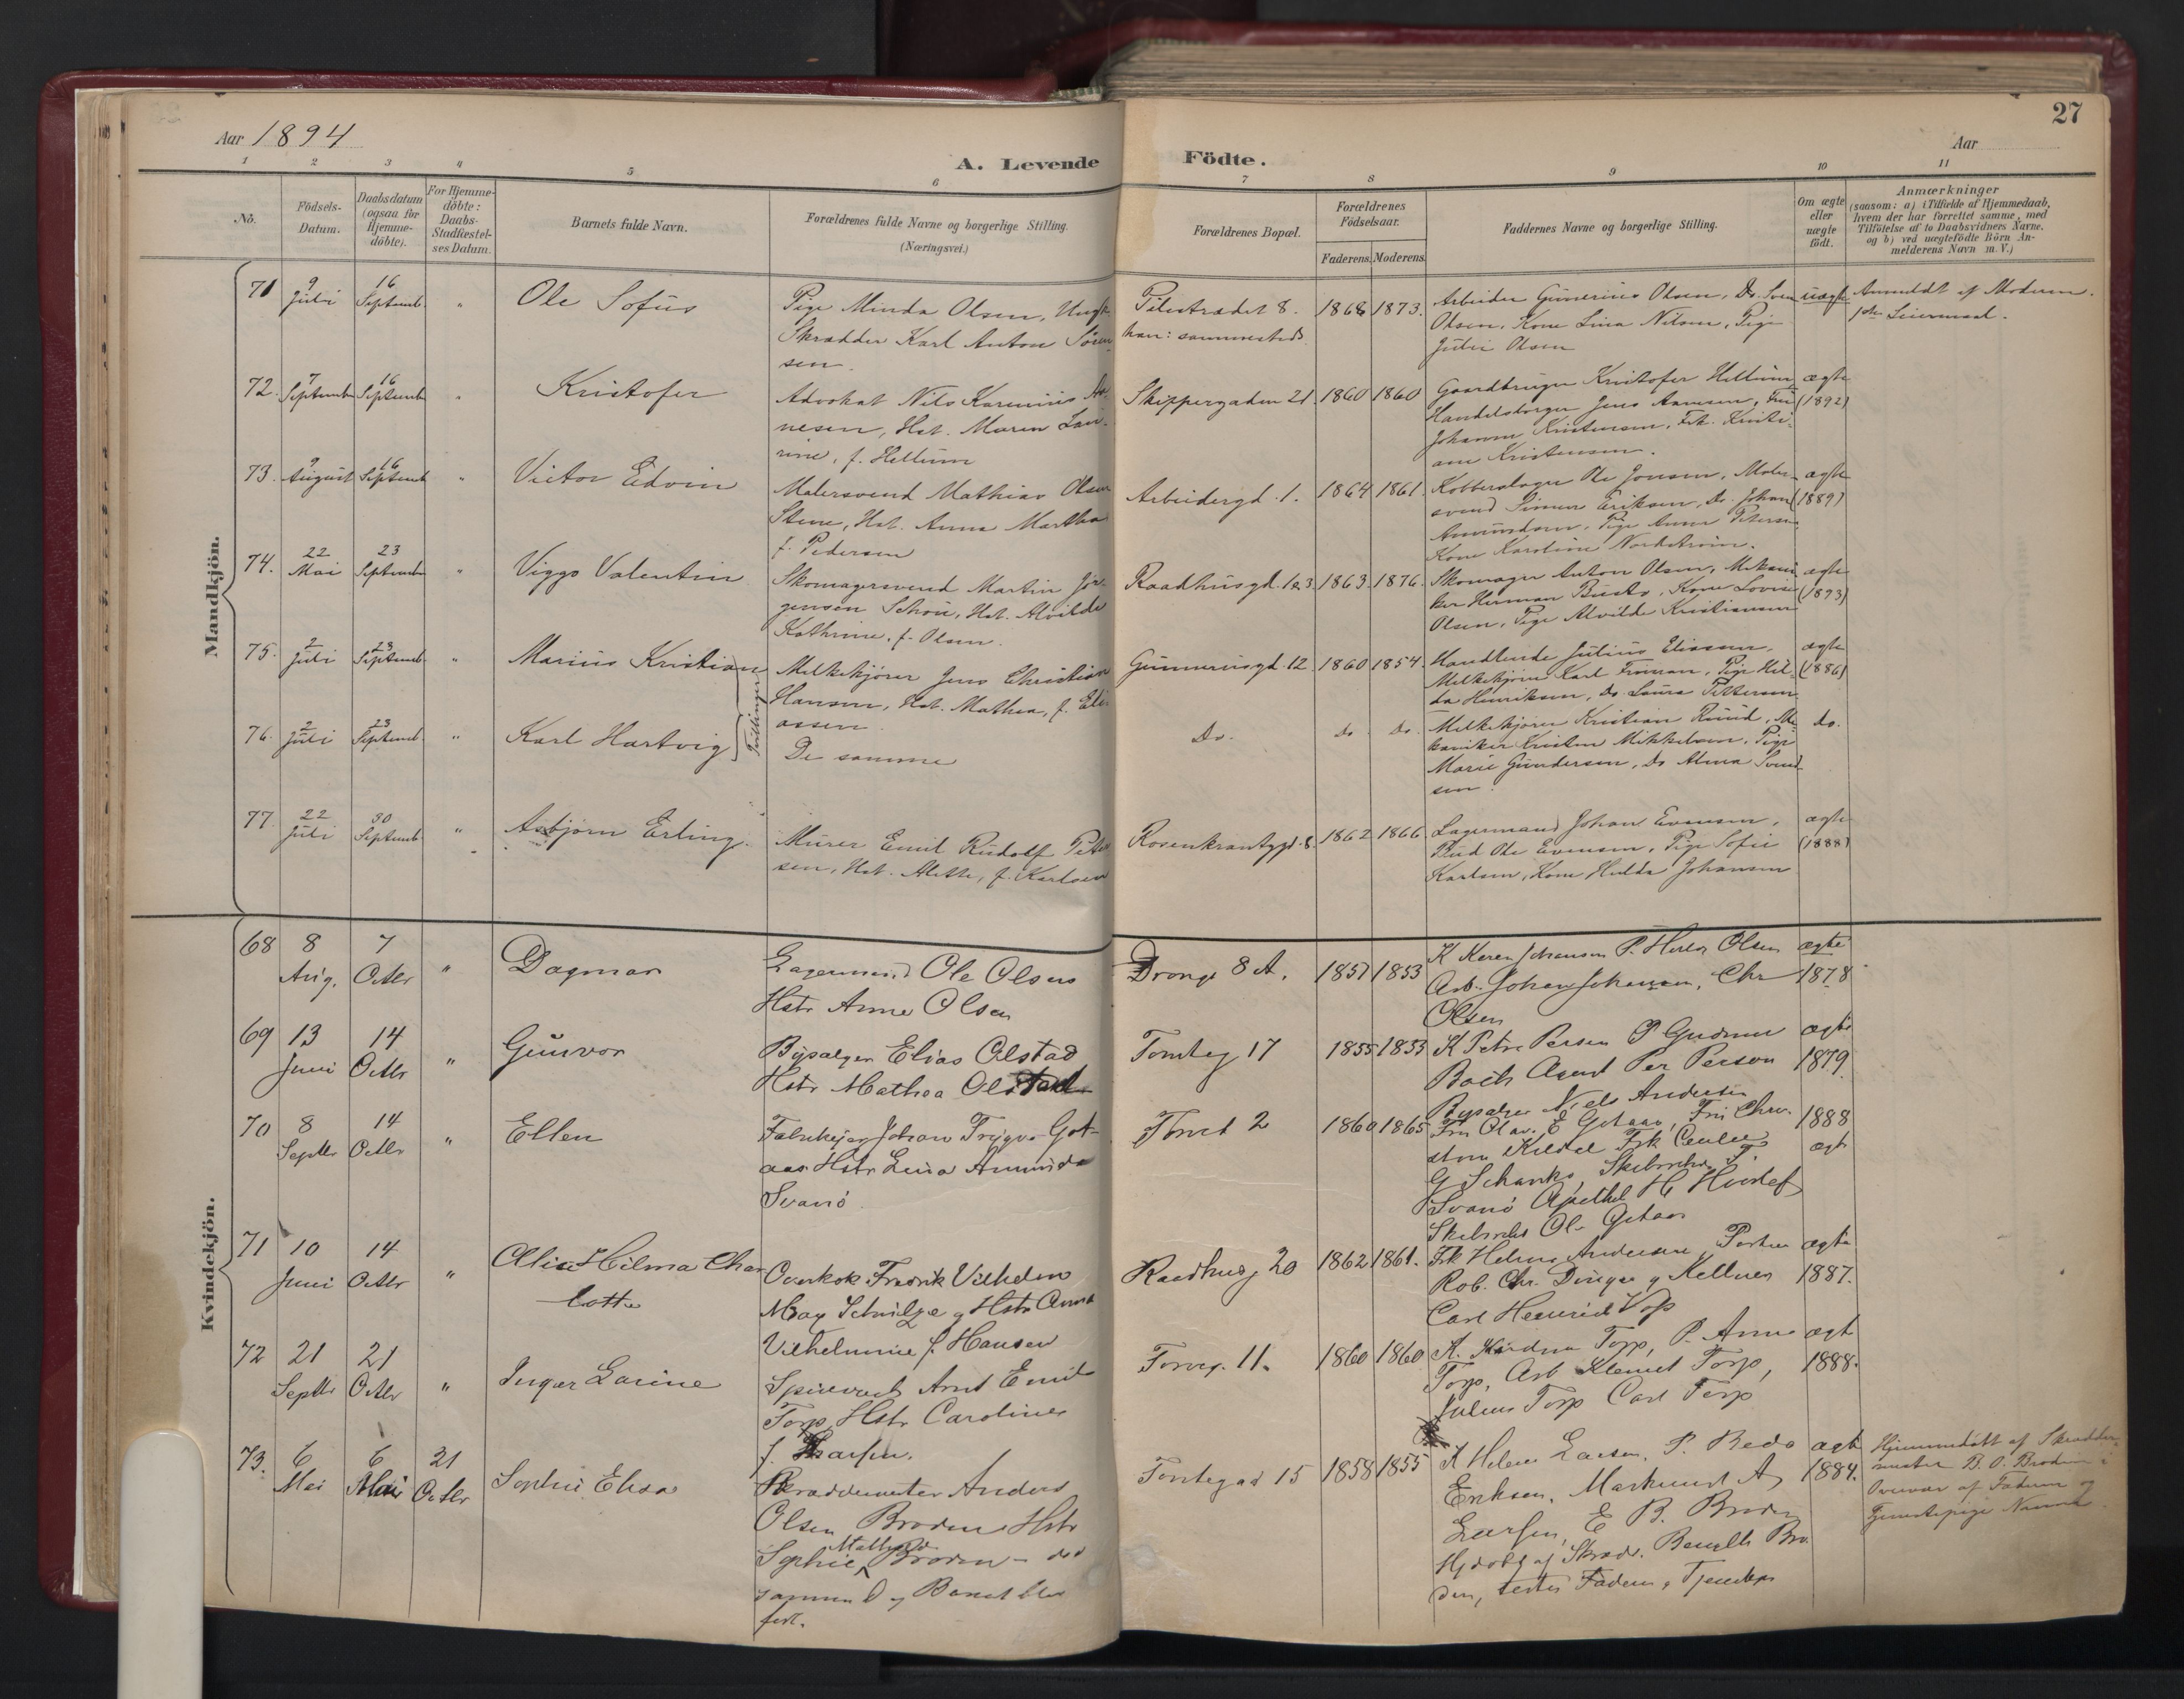 27
Aar 1894
Aar
A. Levende Födte.
1 2 3 4 5 6 7 8 9 10 11
No.
Födsels-
Datum.
Daabsdatum
(ogsaa for
Hjemme-
döbte).
For Hjemme-
döbte:
Daabs-
Stadfæstel-
ses Datum.
Barnets fulde Navn.
Forældrenes fulde Navne og borgerlige Stilling.
(Næringsvei.)
Forældrenes Bopæl.
Forældrenes
Födselsaar.
Faderens. Moderens.
Faddernes Navne og borgerlige Stilling.
Om ægte
eller
uægte
födt.
Anmærkninger
(saasom: a) i Tilfælde af Hjemmedaab,
hvem der har forrettet samme, med
Tilföielse af to Daabsvidners Navne,
og b) ved uægtefödte Börn An-
melderens Navn m. V.)
Mandkjön.
71 9 Juli 16 Septemb. " Ole Sofus
Pige Minda Olsen, Ungk.
Skrædder Karl Anton Sören
sen.
Pilestrædet 8.
han: sammesteds
1868 1873.
Arbeider Gunerius Olsen, Do. Sven
Olsen, Kone Lina Nilsen, Pige
Julie Olsen
uægte
Anmeldt af Moderen.
1ste Leiermaal.
72. 7 September 16 Septemb " Kristofer
Advokat Nils Karenius Ar-
nesen, Hst. Maren Lau-
rine, f. Hellum
Skippergaden 21. 1860 1860
Gaardbruger Kristofer Hellum,
Handelsborger Jens Aamesen, Fru
Johanne Kristensen, Frk. Kristi-
ane Kristensen.
ægte
(1892)
73. 9 August 16 Septemb " Victor Edvin
Malersvend Mathias Olsen
Stene, Hst. Anna Martha
f. Pedersen
Arbeidergd. 1. 1864 1861.
Kobberslager Ole Jonsen, Maler-
svend Simen Eriksen, Do. Johan
Amundsen, Pige Anna Petersen
Kone Karoline Nordström.
ægte
(1889)
74. 22 Mai 23 September " Viggo Valentin
Skomagersvend Martin Jör-
gensen Schou, Hst. Alvilde
Kathrine, f. Olsen.
Raadhusgd. 1 & 3. 1863. 1876.
Skomager Anton Olsen, Mekani-
ker Herman Busto, Kone Lovise
Olsen, Pige Alvilde Kristiansen
ægte
(1893)
75. 2 Juli 23 Septemb " Marius Kristian
Melkekjörer Jens Christian
Hansen, Hst. Mathea, f. Eli-
assen.
Gunnerusgd. 12. 1860 1854.
Handlende Julius Eliassen,
Melkekjörer Karl Froman, Pige Hil-
da Henriksen, Do Laura Pettersen
ægte
(1886)
Tvillinger
76. 2 Juli 23 Septemb. " Karl Hartvig
De samme
Do. do do.
Melkekjörer Kristian Ruud, Me-
kaniker Kristen Mikkelsen, Pige
Marie Gundersen, Do Alma Svend-
sen.
do.
77. 22 Juli 30 Septemb. " Asbjörn Erling.
Murer Emil Rudolf Peter
sen, Hst. Alette, f. Karlsen
Rosenkrantzgd. 8. 1862 1866.
Lagermand Johan Evensen,
Bud Ole Evensen, Pige Sofie
Karlsen, Kone Hulda Johansen
ægte
(1888)
Kvindekjön.
68 8 Aug. 7 Octbr " Dagmar
Lagermand Ole Olsen
Hstr Anne Olsen
Drong 8 A. 1857 1853
K Karen Johansen P. Olsen
Arb. Johan Johansen, Chr
Olsen
ægte
1878
69 13 Juni 14 Octbr " Gunvor
Bypælger Elias Olstad
Hstr Mathea Olstad
Tomteg 17 1855 1853
K Petra Persen P Gudrun
Boch Agent Per Person
Niels Andersen
ægte
1879.
70 8 Septbr 14 Octbr " Ellen
Fabrikejer Johan Trygve Got-
aas Hstr Lina Amunda
Svanö
Torvet 2 1860 1865
Fru Olav. E Gotaas, Fru Chri-
Kildal Frk
G Schanke, Skibsreder
Svanö Apothek H
Skibsreder Ole Gotaas
1888
ægte
71 10 Juni 14 Octbr " Alice Hilma Char
lotte
Overkok Fredrik Vilhelm
Max Schulze og Hstr Anna
Vilhelmine f. Hansen
Raadhusg 20 1862 1861.
Frk Helene Andersen, Portner
Rob. Chr. og Kellner
Carl Heinrich
ægte
1887.
72 21 Septbr 21 Octbr " Inger Larine
Arnt Emil
Torp Hstr Caroline
f. Larsen.
Torveg. 11. 1860 1860
K. Torp, P. Anne
Torp, Arb Klemet Torp,
Julius Torp Carl Torp
ægte
1888.
73. 6 Mai 6 Mai 21 Octbr Sophie Elisa
Skræddermester Anders
Olsen Broden Hstr
Sophie Mathea Broden – död
samme D og Barnet blev
födt.
Tomtegad 15 1858 1855
K Helene Larsen, P.
Eriksen, A
Larsen, E B. Broden
Hjdöbt af Skræd. Bernth Bro
den, testes Faderen,
ægte
1884.
Hjemmedöbt af Skrædder-
mester B. O. Broden i
Overvær af Faderen og
Tjenestepige